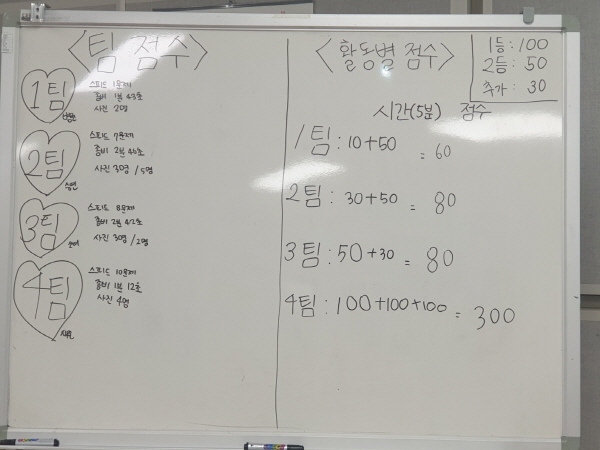 <팀 점수>
1팀
스피드 1문제
줌비 1분 43초
사진 2명
2팀
스피드 7문제
줌비 2분 46초
사진 30명 / 5명
3팀
스피드 8문제
줌비 2분 42초
사진 30명 / 2명
4팀
스피드 10문제
줌비 1분 12초
사진 4명
<활동별 점수>
1등 : 100
2등 : 50
추가 : 30
시간(5분) 점수
1팀 : 10+50 = 60
2팀 : 30+50 = 80
3팀 : 50+30 = 80
4팀 : 100+100+100 = 300